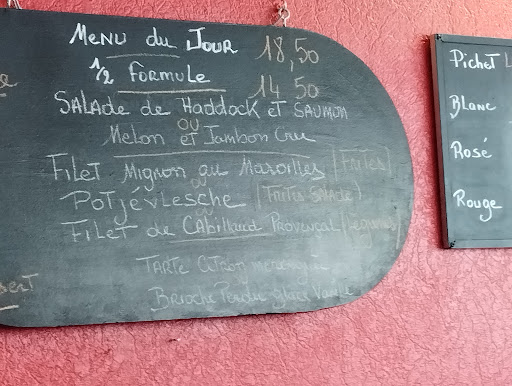 Menu du Jour 18,50
1/2 Formule 14 50
Salade de Haddock et Saumon
ou
Melon et Jambon Cru
Filet Mignon au Maroilles (Frites)
ou
Potjévlesche (Frites Salade)
ou
Filet de Cabillaud Provençal (Légumes)
Tarte Citron meringuée
Brioche Perdue glace Vanille
Pichet
Blanc
Rosé
Rouge